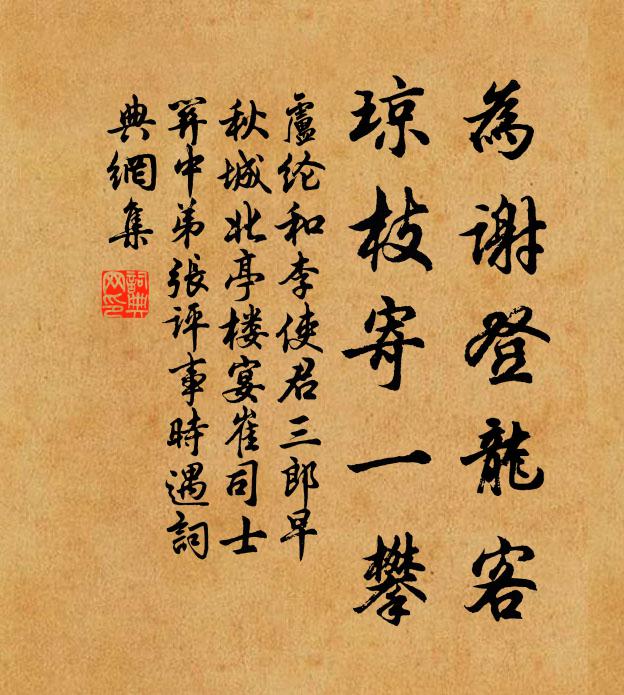 為谢登龍客
琼枝寄一攀
盧纶和李使君三郎早
秋城北亭楼宴崔司士
羿中弟張评事時遇詞
典網集
詞典网印